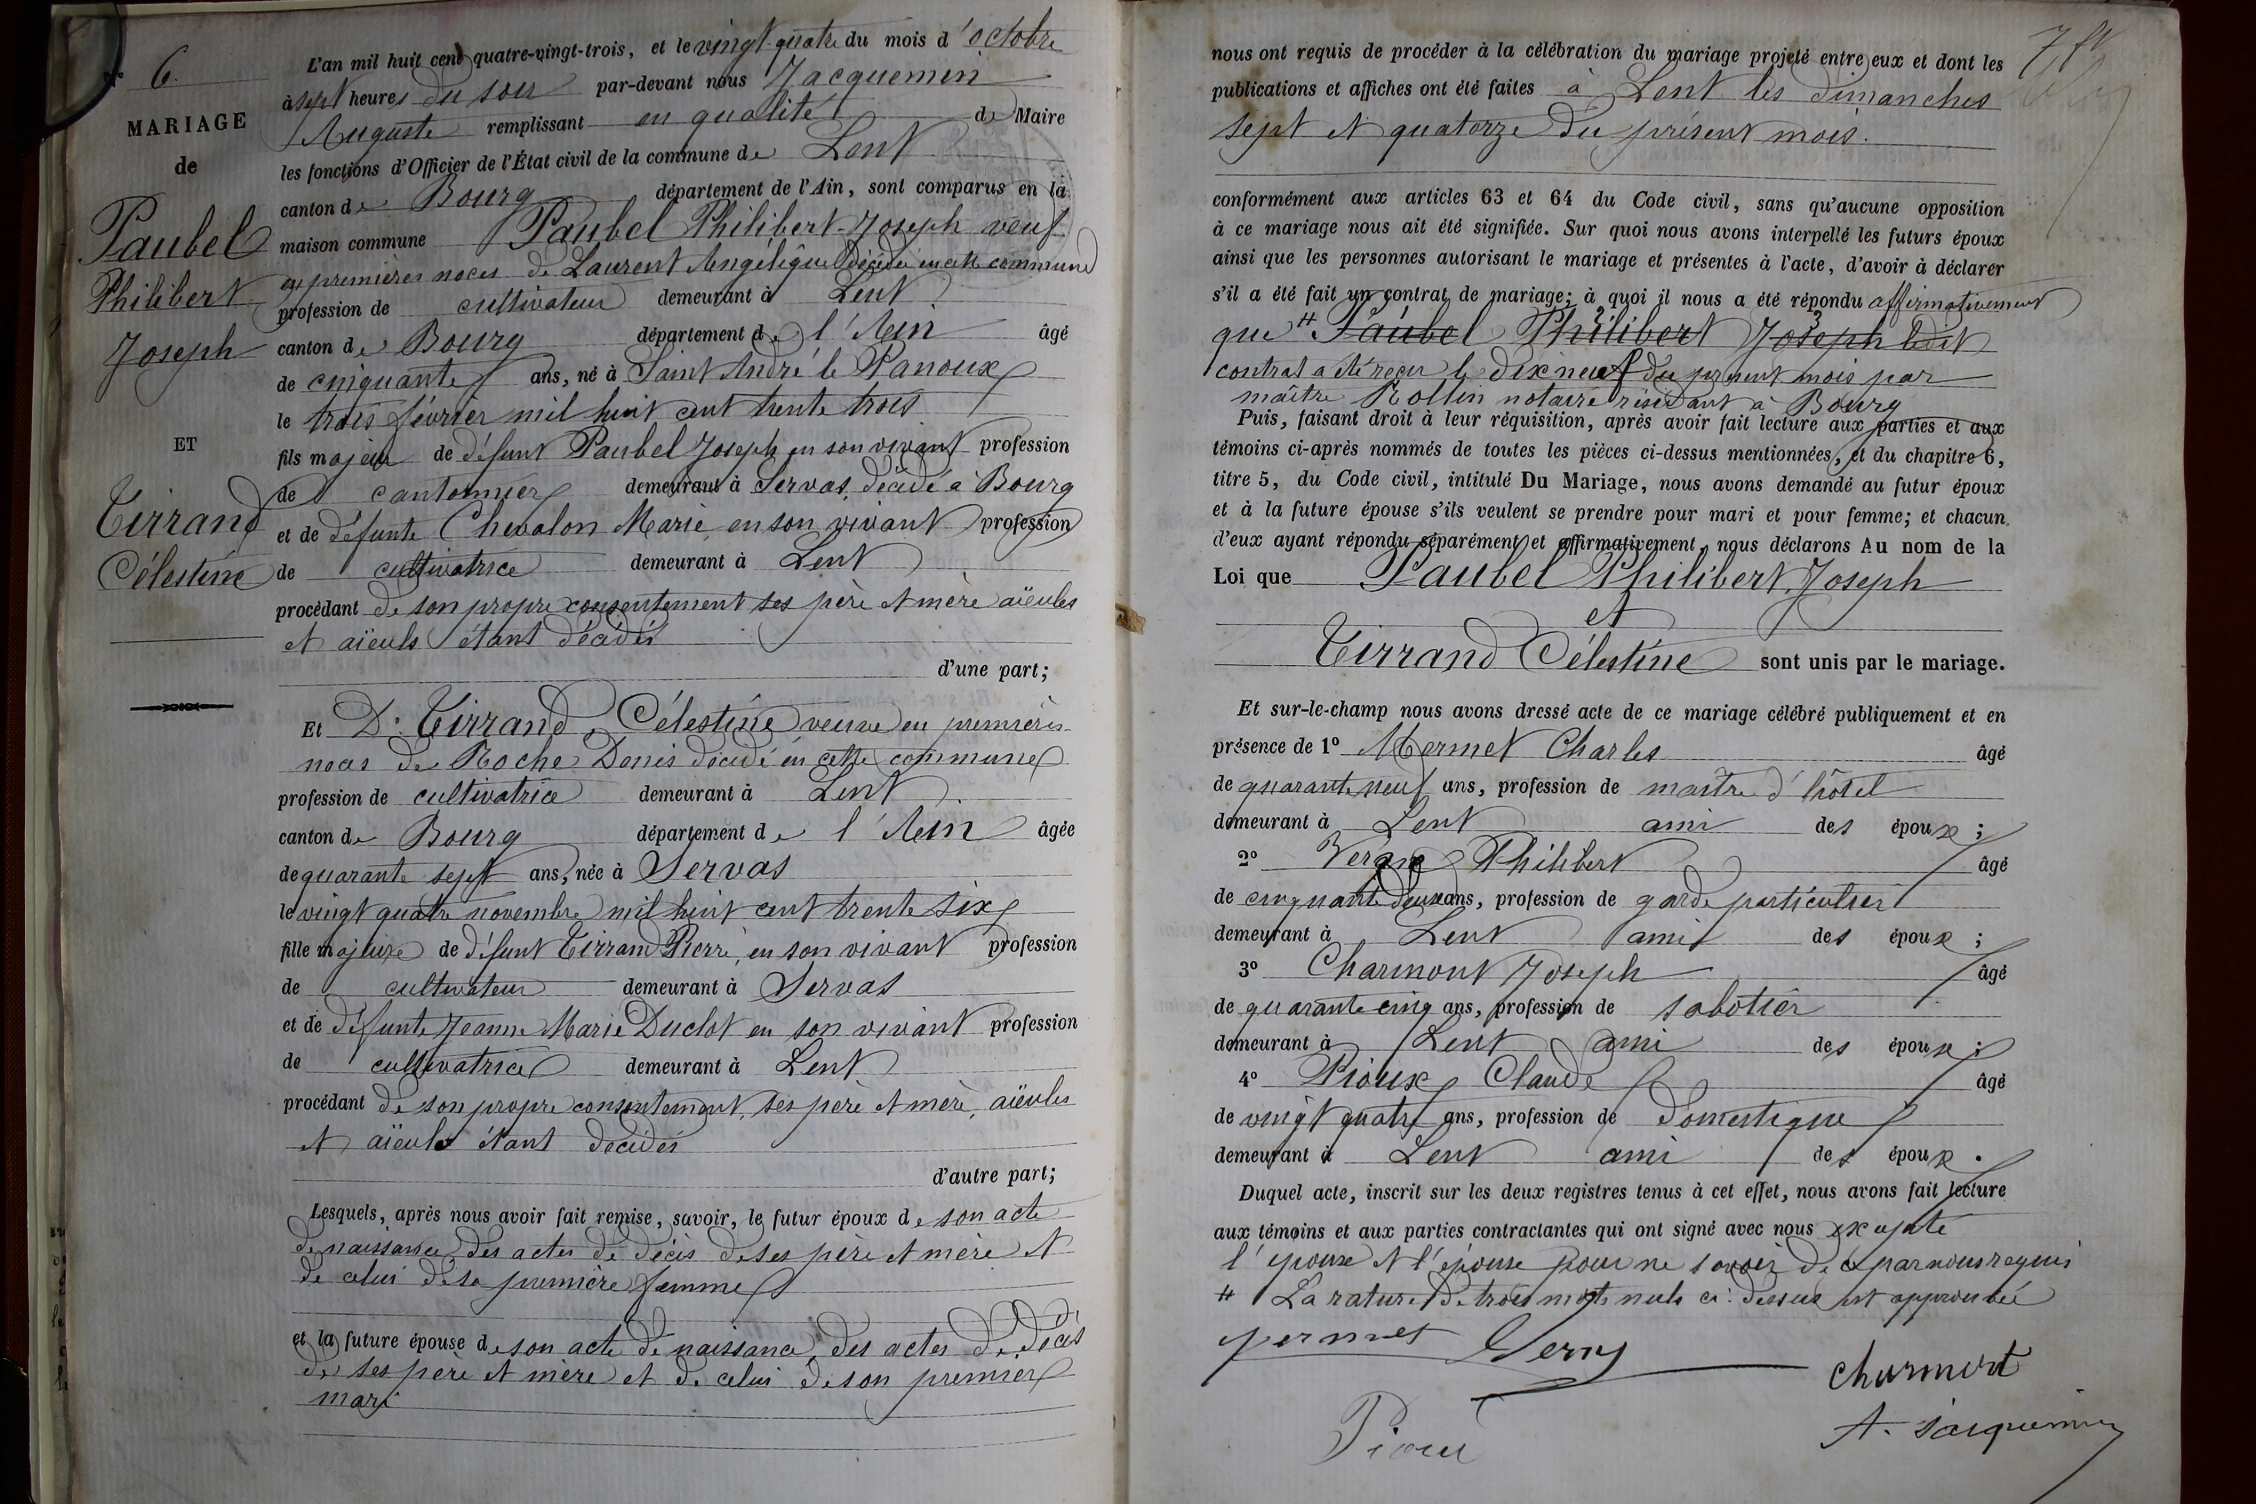 N° 6.
MARIAGE
de
Paubel
Philibert
Joseph
ET
Tirrand
Célestine
L'an mil huit cent quatre-vingt-trois, et le vingt-quatre du mois d'octobre
à sept heures du soir par-devant nous Jacquemin
Auguste remplissant en qualité de Maire
les fonctions d'Officier de l'État civil de la commune de Lent
canton de Bourg département de l'Ain, sont comparus en la
maison commune Paubel Philibert-Joseph veuf
en premières noces de Laurent Angélique décédée en cette commune
profession de cultivateur demeurant à Lent
canton de Bourg département de l'Ain âgé
de cinquante ans, né à Saint André le Panoux
le trois février mil huit cent trente trois
fils majeur de défunt Paubel Joseph en son vivant profession
de cantonnier demeurant à Servas, décédé à Bourg
et de défunte Chevalon Marie, en son vivant profession
de cultivatrice demeurant à Lent
procédant de son propre consentement ses père et mère aïeules
et aïeuls étant décédés
d'une part;
Et De Tirrand Célestine veuve en premières
noces de Roche Denis décédé en cette commune
profession de cultivatrice demeurant à Lent
canton de Bourg département de l'Ain âgée
de quarante sept ans, née à Servas
le vingt quatre novembre mil huit cent trente six
fille majeure de défunt Tirrand Pierre, en son vivant profession
de cultivateur demeurant à Servas
et de défunte Jeanne Marie Duclot en son vivant profession
de cultivatrice demeurant à Lent
procédant de son propre consentement, ses père et mère, aïeules
et aïeuls étant décédés
d'autre part;
Lesquels, après nous avoir fait remise, savoir, le futur époux de son acte
de naissance des actes de décès de ses père et mère et
de celui de sa première femme
et la future épouse de son acte de naissance, des actes de décès
de ses père et mère et de celui de son premier
mari
nous ont requis de procéder à la célébration du mariage projeté entre eux et dont les
publications et affiches ont été faites à Lent les dimanches
sept et quatorze du présent mois.
conformément aux articles 63 et 64 du Code civil, sans qu'aucune opposition
à ce mariage nous ait été signifiée. Sur quoi nous avons interpellé les futurs époux
ainsi que les personnes autorisant le mariage et présentes à l'acte, d'avoir à déclarer
s'il a été fait un contrat de mariage; à quoi il nous a été répondu affirmativement
que # Paubel Philibert Joseph ledit
contrat a été reçu le dix neuf du présent mois par
maître Rollin notaire résidant à Bourg
Puis, faisant droit à leur réquisition, après avoir fait lecture aux parties et aux
témoins ci-après nommés de toutes les pièces ci-dessus mentionnées, et du chapitre 6,
titre 5, du Code civil, intitulé Du Mariage, nous avons demandé au futur époux
et à la future épouse s'ils veulent se prendre pour mari et pour femme; et chacun
d'eux ayant répondu séparément et affirmativement, nous déclarons Au nom de la
Loi que Paubel Philibert, Joseph
et
Tirrand Célestine sont unis par le mariage.
Et sur-le-champ nous avons dressé acte de ce mariage célébré publiquement et en
présence de 1° Mermet Charles âgé
de quarante neuf ans, profession de maître d'hôtel
demeurant à Lent ami des époux;
2° Philibert âgé
de cinquante deux ans, profession de garde particulier
demeurant à Lent ami des époux;
3° Charmont Joseph âgé
de quarante cinq ans, profession de sabotier
demeurant à Lent ami des époux;
4° Pioux Claude âgé
de vingt quatre ans, profession de domestique
demeurant à Lent ami des époux.
Duquel acte, inscrit sur les deux registres tenus à cet effet, nous avons fait lecture
aux témoins et aux parties contractantes qui ont signé avec nous excepté
l'époux et l'épouse pour ne savoir de ce par nous requis
# La rature de trois mots nuls ci-dessus est approuvée
Mermet
Charmont
Pioux
A. Jacquemin